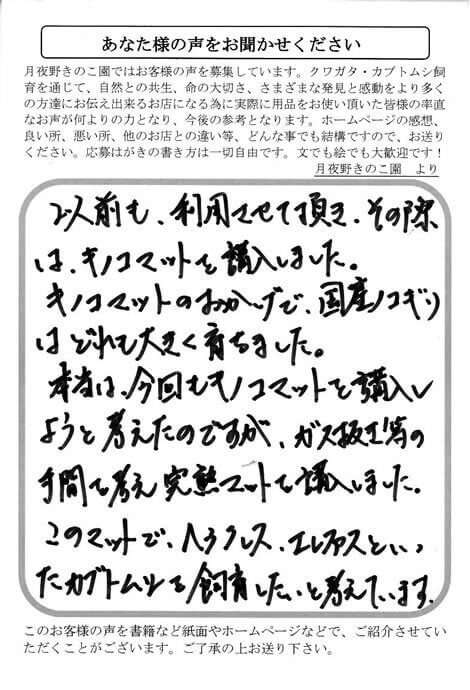 あなた様の声をお聞かせください
月夜野きのこ園ではお客様の声を募集しています。クワガタ・カブトムシ飼
育を通じて、自然との共生、命の大切さ、さまざまな発見と感動をより多く
の方達にお伝え出来るお店になる為に実際に用品をお使い頂いた皆様の率直
なお声が何よりの力となり、今後の参考となります。ホームページの感想、
良い所、悪い所、他のお店との違い等、どんな事でも結構ですので、お送り
ください。応募はがきの書き方は一切自由です。文でも絵でも大歓迎です！
月夜野きのこ園　より
以前も、利用させて頂き、その際
は、キノコマットを購入しました。
キノコマットのおかげで、国産ノコギリ
はどれも大きく育ちました。
本当は、今回もキノコマットを購入し
ようと考えたのですが、ガス抜き等の
手間を考え完熟マットを購入しました。
このマットで、ヘラクレス、エレファスといっ
たカブトムシを飼育したいと考えています。
このお客様の声を書籍など紙面やホームページなどで、ご紹介させてい
ただくことがございます。ご了承の上お送り下さい。